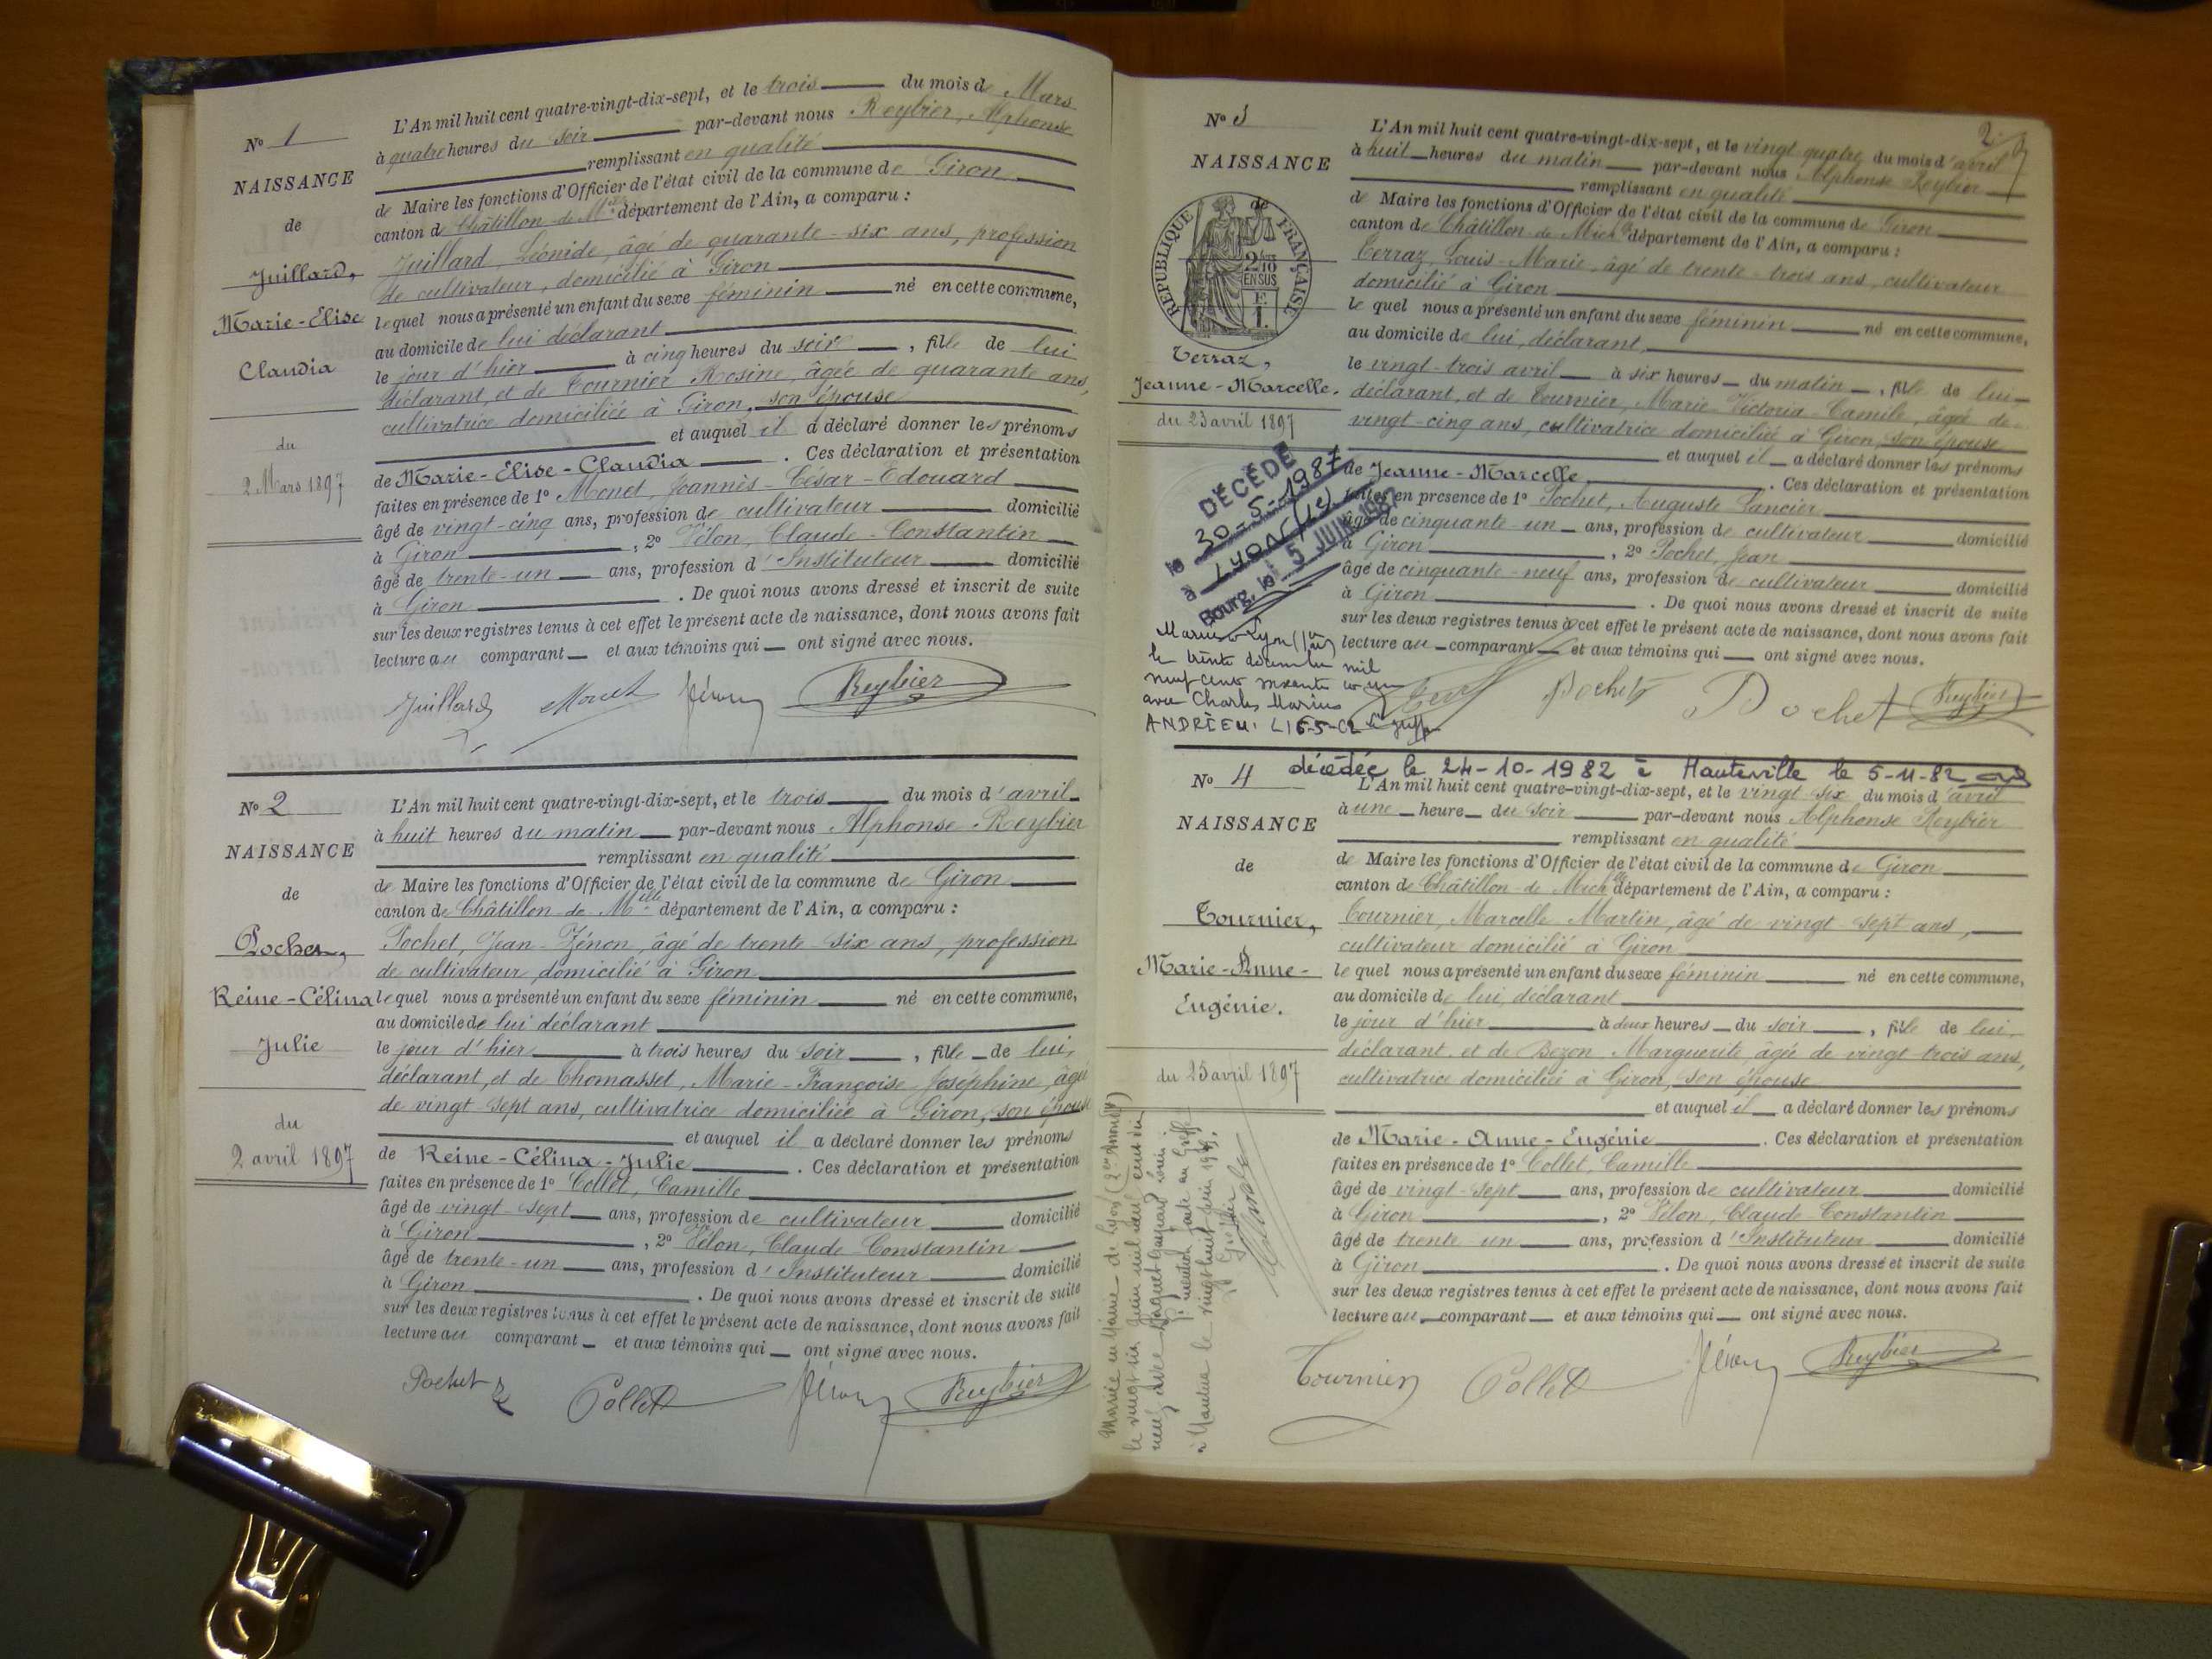 No 1
NAISSANCE
de
Juillard,
Marie-Elise
Claudia
du
2 Mars 1897
L'An mil huit cent quatre-vingt-dix-sept, et le trois du mois de Mars
à quatre heures du soir par-devant nous Reybier, Alphonse
remplissant en qualité
de Maire les fonctions d'Officier de l'état civil de la commune de Giron
canton de Châtillon de Mlle département de l'Ain, a comparu :
Juillard, Léonide, âgé de quarante-six ans, profession
de cultivateur, domicilié à Giron
lequel nous a présenté un enfant du sexe féminin né en cette commune,
au domicile de lui déclarant
le jour d'hier à cinq heures du soir, fille de lui
déclarant, et de Tournier Rosine, âgée de quarante ans,
cultivatrice domiciliée à Giron, son épouse
et auquel il a déclaré donner les prénoms
de Marie-Elise-Claudia. Ces déclaration et présentation
faites en présence de 1º Monet, Joannès-César-Edouard
âgé de vingt-cinq ans, profession de cultivateur domicilié
à Giron, 2º Vélon, Claude-Constantin
âgé de trente-un ans, profession d'Instituteur domicilié
à Giron. De quoi nous avons dressé et inscrit de suite
sur les deux registres tenus à cet effet le présent acte de naissance, dont nous avons fait
lecture au comparant et aux témoins qui ont signé avec nous.
Juillard Monet Reybier
No 2
NAISSANCE
de
Pochet,
Reine-Célina
Julie
du
2 avril 1897
L'An mil huit cent quatre-vingt-dix-sept, et le trois du mois d'avril
à huit heures du matin par-devant nous Alphonse Reybier
remplissant en qualité
de Maire les fonctions d'Officier de l'état civil de la commune de Giron
canton de Châtillon de Mlle département de l'Ain, a comparu :
Pochet, Jean-Zénon, âgé de trente-six ans, profession
de cultivateur, domicilié à Giron
lequel nous a présenté un enfant du sexe féminin né en cette commune,
au domicile de lui déclarant
le jour d'hier à trois heures du soir, fille de lui,
déclarant, et de Thomasset, Marie-Françoise-Joséphine, âgée
de vingt-sept ans, cultivatrice domiciliée à Giron, son épouse
et auquel il a déclaré donner les prénoms
de Reine-Célina-Julie. Ces déclaration et présentation
faites en présence de 1º Collet, Camille
âgé de vingt-sept ans, profession de cultivateur domicilié
à Giron, 2º Vélon, Claude-Constantin
âgé de trente-un ans, profession d'Instituteur domicilié
à Giron. De quoi nous avons dressé et inscrit de suite
sur les deux registres tenus à cet effet le présent acte de naissance, dont nous avons fait
lecture au comparant et aux témoins qui ont signé avec nous.
Pochet Collet Reybier
2
No 3
NAISSANCE
de
RÉPUBLIQUE FRANÇAISE
2/10
EN SUS
Terraz,
Jeanne-Marcelle.
du 23 avril 1897
DÉCÉDÉ
le 30-5-1987
à Lyon
Bourg, le 5 JUIN 1987
Mariée à Lyon
le trente décembre mil
neuf cent soixante et un
avec Charles Marius
ANDRIEU.
L'An mil huit cent quatre-vingt-dix-sept, et le vingt-quatre du mois d'avril
à huit heures du matin par-devant nous Alphonse Reybier
remplissant en qualité
de Maire les fonctions d'Officier de l'état civil de la commune de Giron
canton de Châtillon-de-Mich département de l'Ain, a comparu :
Terraz, Louis-Marie, âgé de trente-trois ans, cultivateur
domicilié à Giron
lequel nous a présenté un enfant du sexe féminin né en cette commune,
au domicile de lui, déclarant,
le vingt-trois avril à six heures du matin, fille de lui
déclarant, et de Tournier, Marie-Victoria-Camile, âgée de
vingt-cinq ans, cultivatrice domiciliée à Giron, son épouse
et auquel il a déclaré donner les prénoms
de Jeanne-Marcelle. Ces déclaration et présentation
faites en présence de 1º Pochet, Auguste Lancier
âgé de cinquante-un ans, profession de cultivateur domicilié
à Giron, 2º Pochet, Jean
âgé de cinquante-neuf ans, profession de cultivateur domicilié
à Giron. De quoi nous avons dressé et inscrit de suite
sur les deux registres tenus à cet effet le présent acte de naissance, dont nous avons fait
lecture au comparant et aux témoins qui ont signé avec nous.
Pochet Pochet Reybier
No 4
décédée le 24-10-1982 à Hauteville le 5-11-82
NAISSANCE
de
Tournier,
Marie-Anne-
Eugénie.
du 25 avril 1897
L'An mil huit cent quatre-vingt-dix-sept, et le vingt-six du mois d'avril
à une heure du soir par-devant nous Alphonse Reybier
remplissant en qualité
de Maire les fonctions d'Officier de l'état civil de la commune de Giron
canton de Châtillon-de-Mich département de l'Ain, a comparu :
Tournier, Marcelle-Martin, âgé de vingt-sept ans,
cultivateur domicilié à Giron
lequel nous a présenté un enfant du sexe féminin né en cette commune,
au domicile de lui, déclarant
le jour d'hier à deux heures du soir, fille de lui,
déclarant, et de Bozon Marguerite, âgée de vingt-trois ans,
cultivatrice domiciliée à Giron, son épouse
et auquel il a déclaré donner les prénoms
de Marie-Anne-Eugénie. Ces déclaration et présentation
faites en présence de 1º Collet, Camille
âgé de vingt-sept ans, profession de cultivateur domicilié
à Giron, 2º Vélon, Claude Constantin
âgé de trente-un ans, profession d'Instituteur domicilié
à Giron. De quoi nous avons dressé et inscrit de suite
sur les deux registres tenus à cet effet le présent acte de naissance, dont nous avons fait
lecture au comparant et aux témoins qui ont signé avec nous.
Tournier Collet Reybier